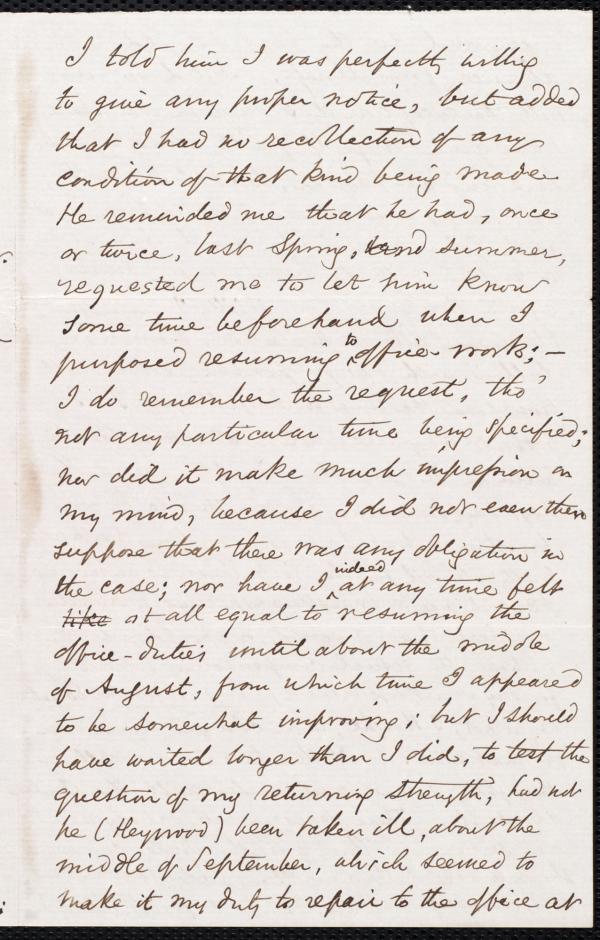 I told him I was perfectly willing
to give any proper notice, but added
that I had no recollection of any
condition of that kind being made
He reminded me that he had, once
or twice, last Spring, and summer,
requested me to let him know
some time beforehand when I
purposed resuming to office work; —
I do remember the request, tho'
not any particular time being specified;
nor did it make much impression on
my mind, because I did not even then
suppose that there was any obligation in
the case; nor have I indeed at any time felt
like at all equal to resuming the
office-duties until about the middle
of August, from which time I appeared
to be somewhat improving; but I should
have waited longer than I did, to test the
question of my returning strength, had not
he (Heywood) been taken ill, about the
middle of September, which seemed to
make it my duty to repair to the office at